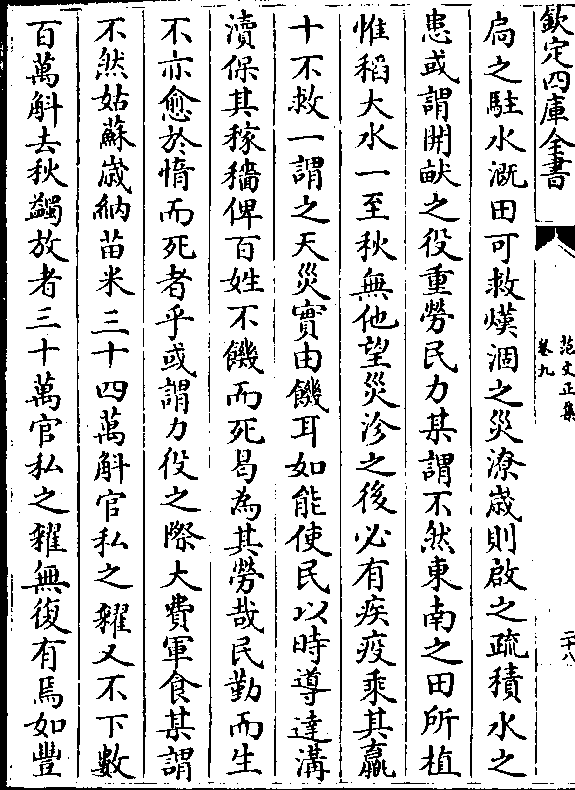 欽定四庫全書
范文正集
卷九
二十八
扃之駐水溉田可救熯涸之災潦歲則啟之疏積水之
患或謂開畎之役重勞民力某謂不然東南之田所植
惟稻大水一至秋無他望災沴之後必有疾疫乘其羸
十不救一謂之天災實由饑耳如能使民以時導達溝
瀆保其稼穡俾百姓不饑而死曷為其勞哉民勤而生
不亦愈於惰而死者乎或謂力役之際大費軍食某謂
不然姑蘇歲納苗米三十四萬斛官私之糴又不下數
百萬斛去秋蠲放者三十萬官私之糴無復有焉如豐